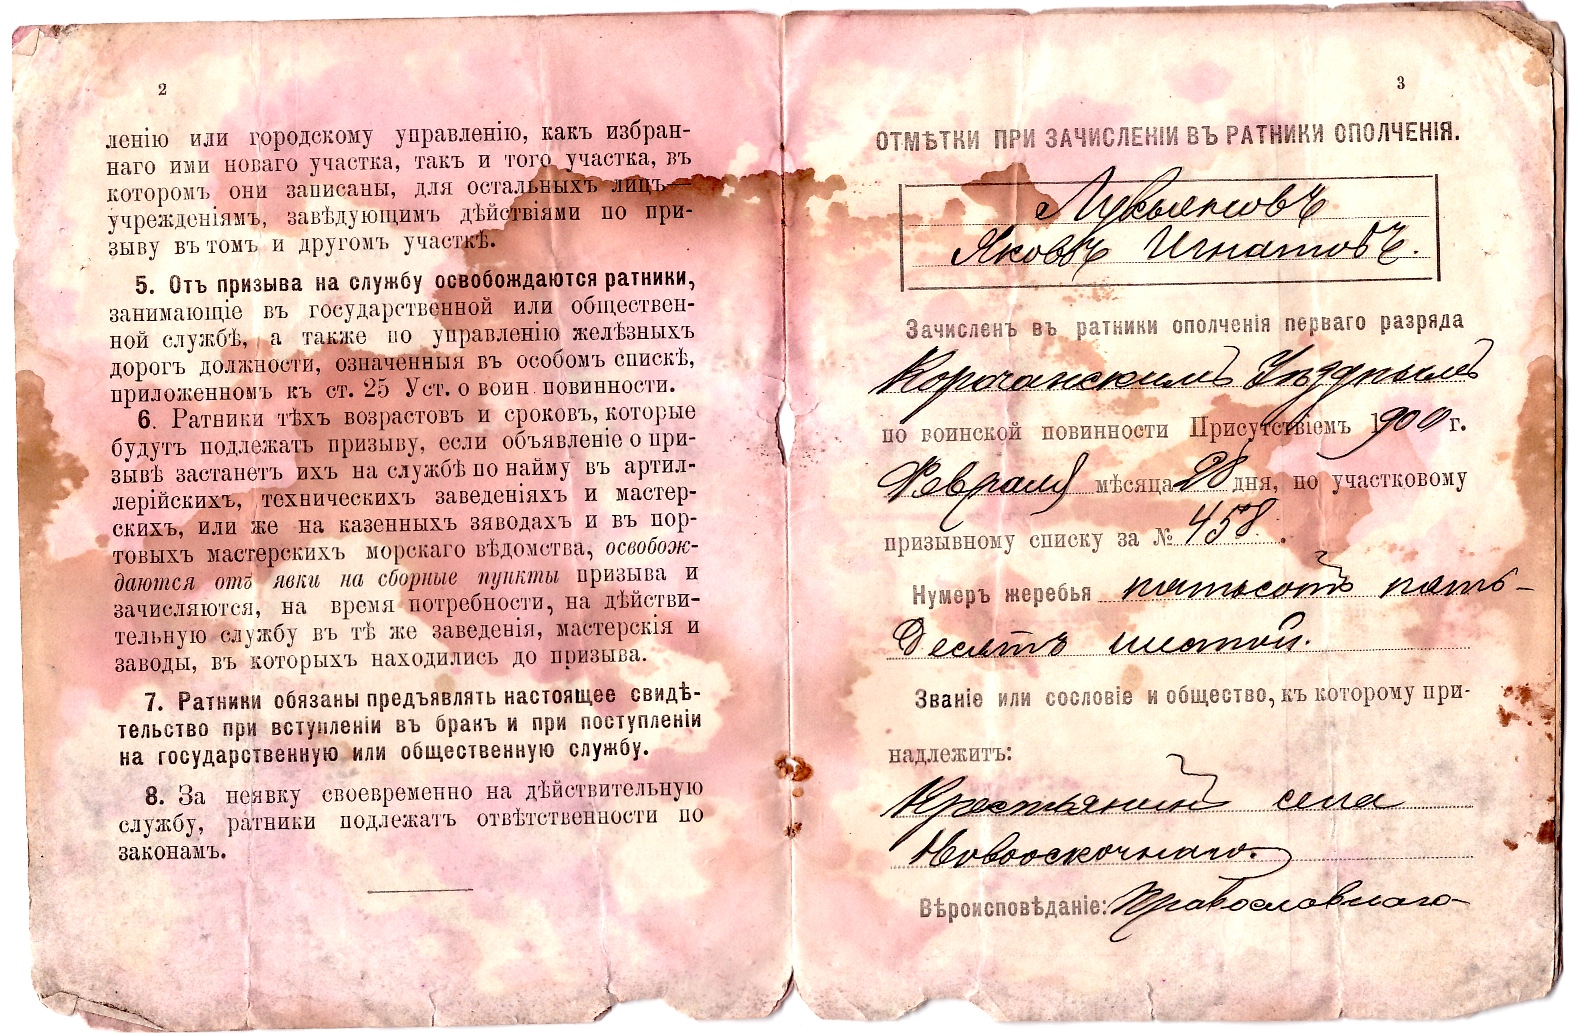 2
ленію или городскому управленію, какъ избран-
наго ими новаго участка, такъ и того участка, въ
которомъ они записаны, для остальныхъ лицъ—
учрежденіямъ, завѣдующимъ дѣйствіями по при-
зыву въ томъ и другомъ участкѣ.
5. Отъ призыва на службу освобождаются ратники,
занимающіе въ государственной или обществен-
ной службѣ, а также по управленію желѣзныхъ
дорогъ должности, означенныя въ особомъ спискѣ,
приложенномъ къ ст. 25 Уст. о воин. повинности.
6. Ратники тѣхъ возрастовъ и сроковъ, которые
будутъ подлежать призыву, если объявленіе о при-
зывѣ застанетъ ихъ на службѣ по найму въ артил-
лерійскихъ, техническихъ заведеніяхъ и мастер-
скихъ, или же на казенныхъ зяводахъ и въ пор-
товыхъ мастерскихъ морскаго вѣдомства, освобож-
даются отъ явки на сборные пункты призыва и
зачисляются, на время потребности, на дѣйстви-
тельную службу въ тѣ же заведенія, мастерскія и
заводы, въ которыхъ находились до призыва.
7. Ратники обязаны предъявлять настоящее свидѣ-
тельство при вступленіи въ бракъ и при поступленіи
на государственную или общественную службу.
8. За неявку своевременно на дѣйствительную
службу, ратники подлежатъ отвѣтственности по
законамъ.
3
ОТМѢТКИ ПРИ ЗАЧИСЛЕНІИ ВЪ РАТНИКИ ОПОЛЧЕНІЯ.
Лукьянсовъ
Яковъ Игнатовъ.
Зачисленъ въ ратники ополченія перваго разряда
Корочанскимъ Уѣзднымъ
по воинской повинности Присутствіемъ 1900 г.
Февраля мѣсяца 28 дня, по участковому
призывному списку за № 458.
Нумеръ жеребья пятьсотъ пять-
десятъ шестой.
Званіе или сословіе и общество, къ которому при-
надлежитъ:
Крестьянинъ села
Новооскочнаго.
Вѣроисповѣданіе: Православнаго